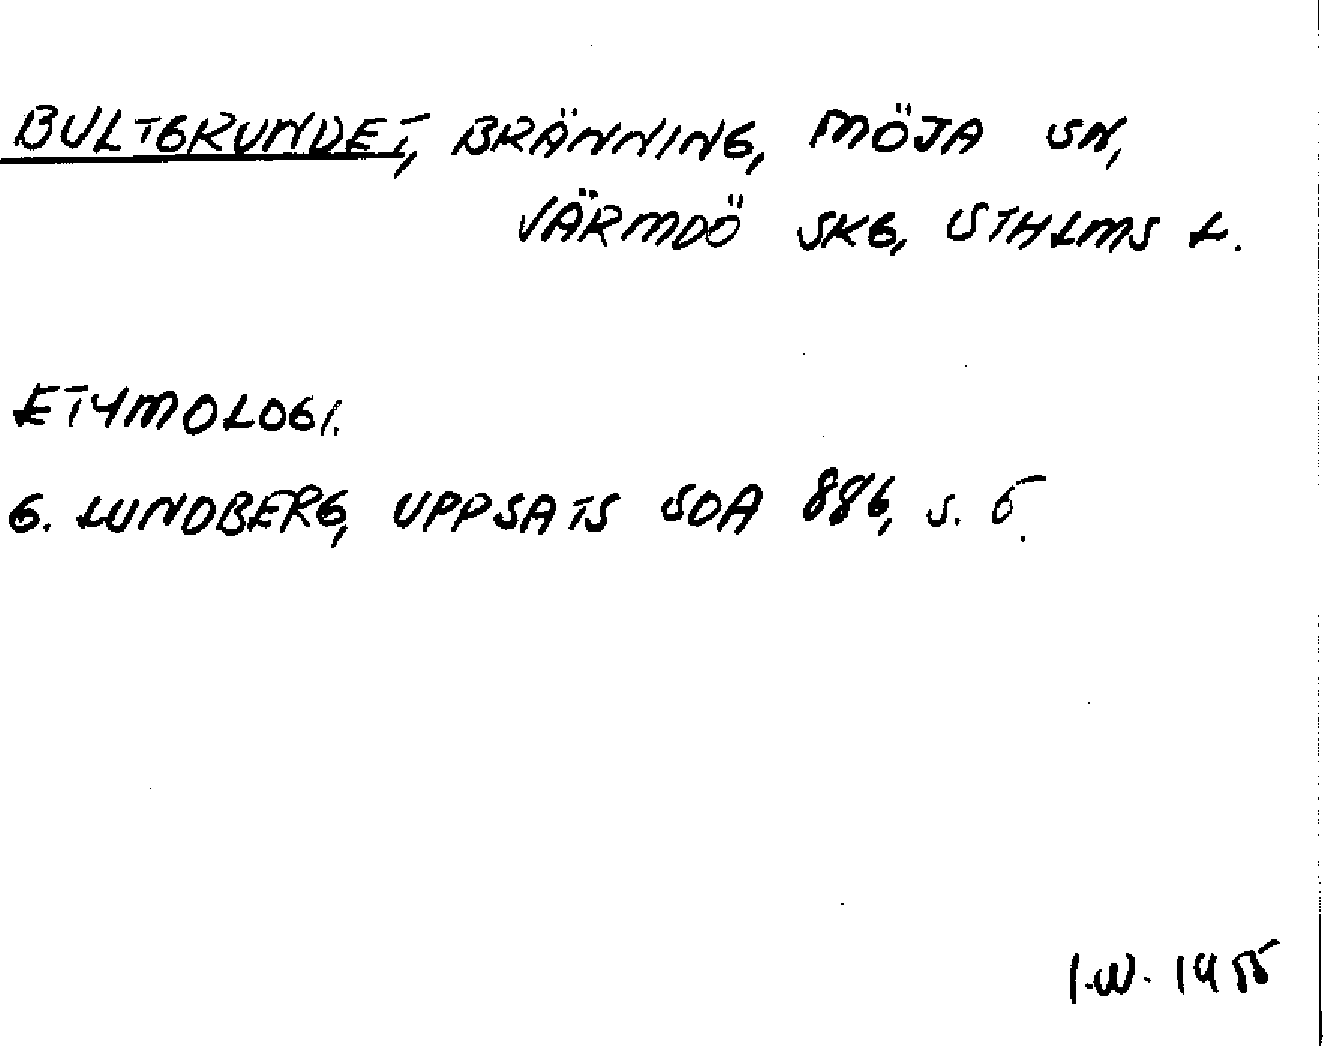 BULTGRUNDET, BRÄNNING, MÖJA SN,
VÄRMDÖ SKG, STHLMS L.
ETYMOLOGI.
G. LUNDBERG, UPPSATS SOA 886, s. 5.
I.W. 1955